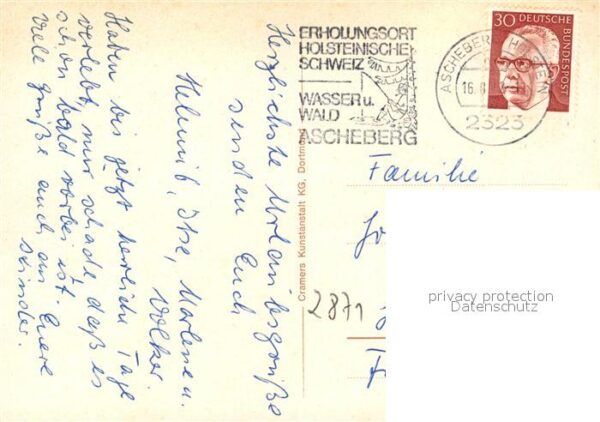 ERHOLUNGSORT
HOLSTEINISCHE
SCHWEIZ
WASSER u.
WALD
ASCHEBERG
ASCHEBERG HOLSTEIN
16.8.
2323
30 DEUTSCHE
BUNDESPOST
Herzlichste Urlaubsgrüße
senden Euch
Helmut, Ilse, Marlene u.
Volker.
Haben bis jetzt herrliche Tage
verlebt, nur schade, daß es
schon bald vorbei ist.
Viele Grüße auch an Euere
Kinder.
Cramers Kunstanstalt KG, Dortmund
Familie
Jo
2871
F
privacy protection
Datenschutz